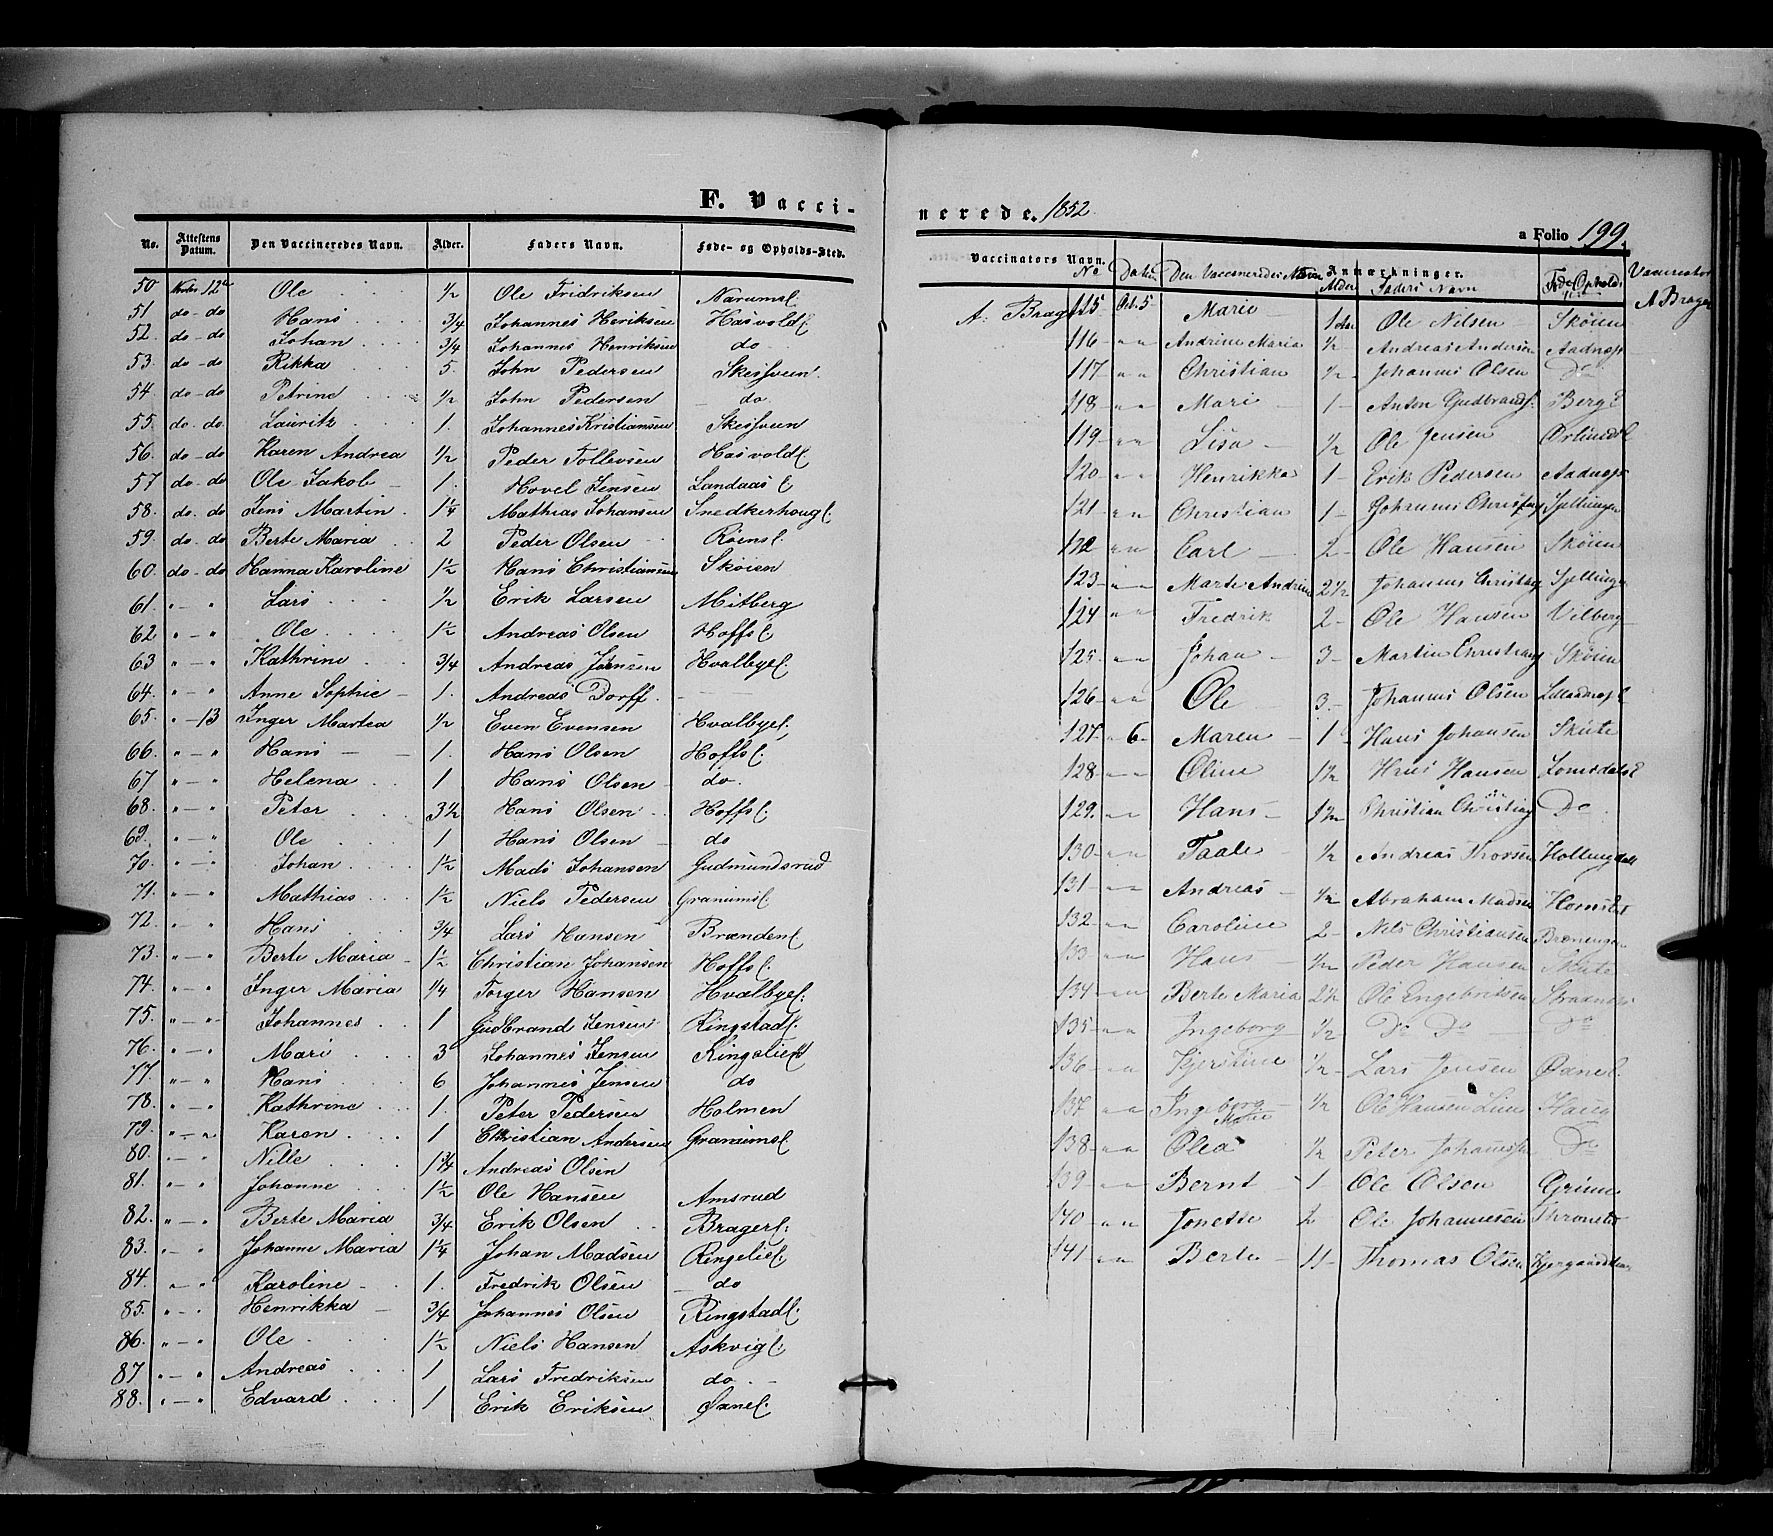 F. Vacci-
No. Attestens Datum. Den Vaccineredes Navn. Alder. Faders Navn. Føde- og Opholds-Sted.
50 12te Ole ½ Ole Fridriksen Narumsl.
51 do - do Hans ¾ Johannes Henriksen Hasvoldl.
52. do - do Johan ¾ Johannes Henriksen do
53. do - do Rikka 5. John Pedersen
54 do - do Petrine ½ John Pedersen do.
55. do - do. Lauritz 1. Johannes Kristiansen
56. do - do Karen Andrea ½ Peder Tollevsen Hasvoldl
57 do - do Ole Jakob 1. Hovel Jensen Landaasl
58. do - do Jens Martin 1¼ Mathias Johansen Snedkerhougl.
59. do - do Berte Maria 2 Peder Olsen Røensl.
60. do - do Hanna Karoline 1½ Hans Christiansen Skøien
61. " - " Lars ½ Erik Larsen Mitberg
62 " - " Ole 1½ Andreas Olsen Hoffsl.
63 " - " Kathrine ¾ Andreas Jensen Hvalbyel.
64. " - " Anne Sophie 1. Andreas Dorff
65. " - 13 Inger Martea ½ Even Evensen Hvalbyel.
66. " - " Hans 1. Hans Olsen Hoffsl.
67 " - " Helena 1 Hans Olsen do.
68. " - " Peter 3½ Hans Olsen Hoffsl.
69. " - " Ole 1 Hans Olsen do
70. " - " Johan 1½ Mads Johansen Gudmundsrud
71. " - " Mathias 1½ Niels Pedersen Granumsl.
72. " - " Hans ¾ Lars Hansen Brændenl
73. " - " Berte Maria 1½ Christian Johansen Hoffsl.
74. " - " Inger Maria ¼ Torger Hansen Hvalbyel.
75. " - " Johannes 1 Gudbrand Jensen Ringstadl.
76. " - " Mari 3 Johannes Jensen
77. " - " Hans 6 Johannes Jensen do
78. " - " Kathrine 1. Peter Pedersen Holmen
79. " - " Karen 1 Christian Andersen Granumsl
80. " - " Nille 1¾ Andreas Olsen
81. " - " Johanne 1½ Ole Hansen Amsrud
82. " - " Berte Maria ¾ Erik Olsen Bragerl.
83. " - " Johanne Maria 1¼ Johan Madsen Ringeliel.
84. " - " Karoline 1. Fredrik Olsen do
85. " - " Henrikka ¾ Johannes Olsen Ringstadl.
86. " - " Ole 1½ Niels Hansen Askvigl.
87 " - " Andreas 1 Lars Fredriksen do.
88. " - " Edvard 1 Erik Eriksen Øxnel.
nerede. 1852.
a Folio 199.
Vaccinators Navn. Anmærkninger.
No Datum Den Vaccineredes Navn Alder Faders Navn Føde Opholds Vaccinator
A. Brager 115 Oct. 5 Marie 1 Ole Nilsen Skøien A Brager
116 " " Andrine Maria ½ Andreas Andersen
117 " " Christian ½ Johannes Olsen Do
118 " " Mari 1 Anton Gudbrands. Bergl
119 " " Lisa ½ Ole Jensen
120 " " Henrikka 1 Erik Pedersen
121 " " Christian 1
122 " " Carl 2 Ole Hansen Skøien
123 " " Marte Andrine 2½
124 " " Fredrik 2 Ole Hansen Vilberg
125 " " Johan 3 Martin Christians Skøien
126 " " Ole 3 Johannes Olsen
127 " 6 Maren 1 Hans Johansen Skute
128 " " Oline 1½ Hans Hansen
129. " " Hans 1½ Christian Christians Do
130 " " Taale ½ Andreas Thorsen
131 " " Andreas ½ Abraham Madsen
132 " " Caroline 2 Nils Christiansen
133 " " Hans ½ Peder Hansen Skute
134 " " Berte Maria 2½ Ole Engebretsen
135 " " Ingeborg ½ Do Do Do
136 " " Kjerstine ½ Lars Jensen Øxnel.
137 " " Ingeborg Marie ½ Ole Hansen Haug
138 " " Olea ½ Peter Do
139 " " Bernt 1 Ole Olsen
140 " " Jonette 2 Ole Johannesen
141 " " Berte 11 Thomas Olsen